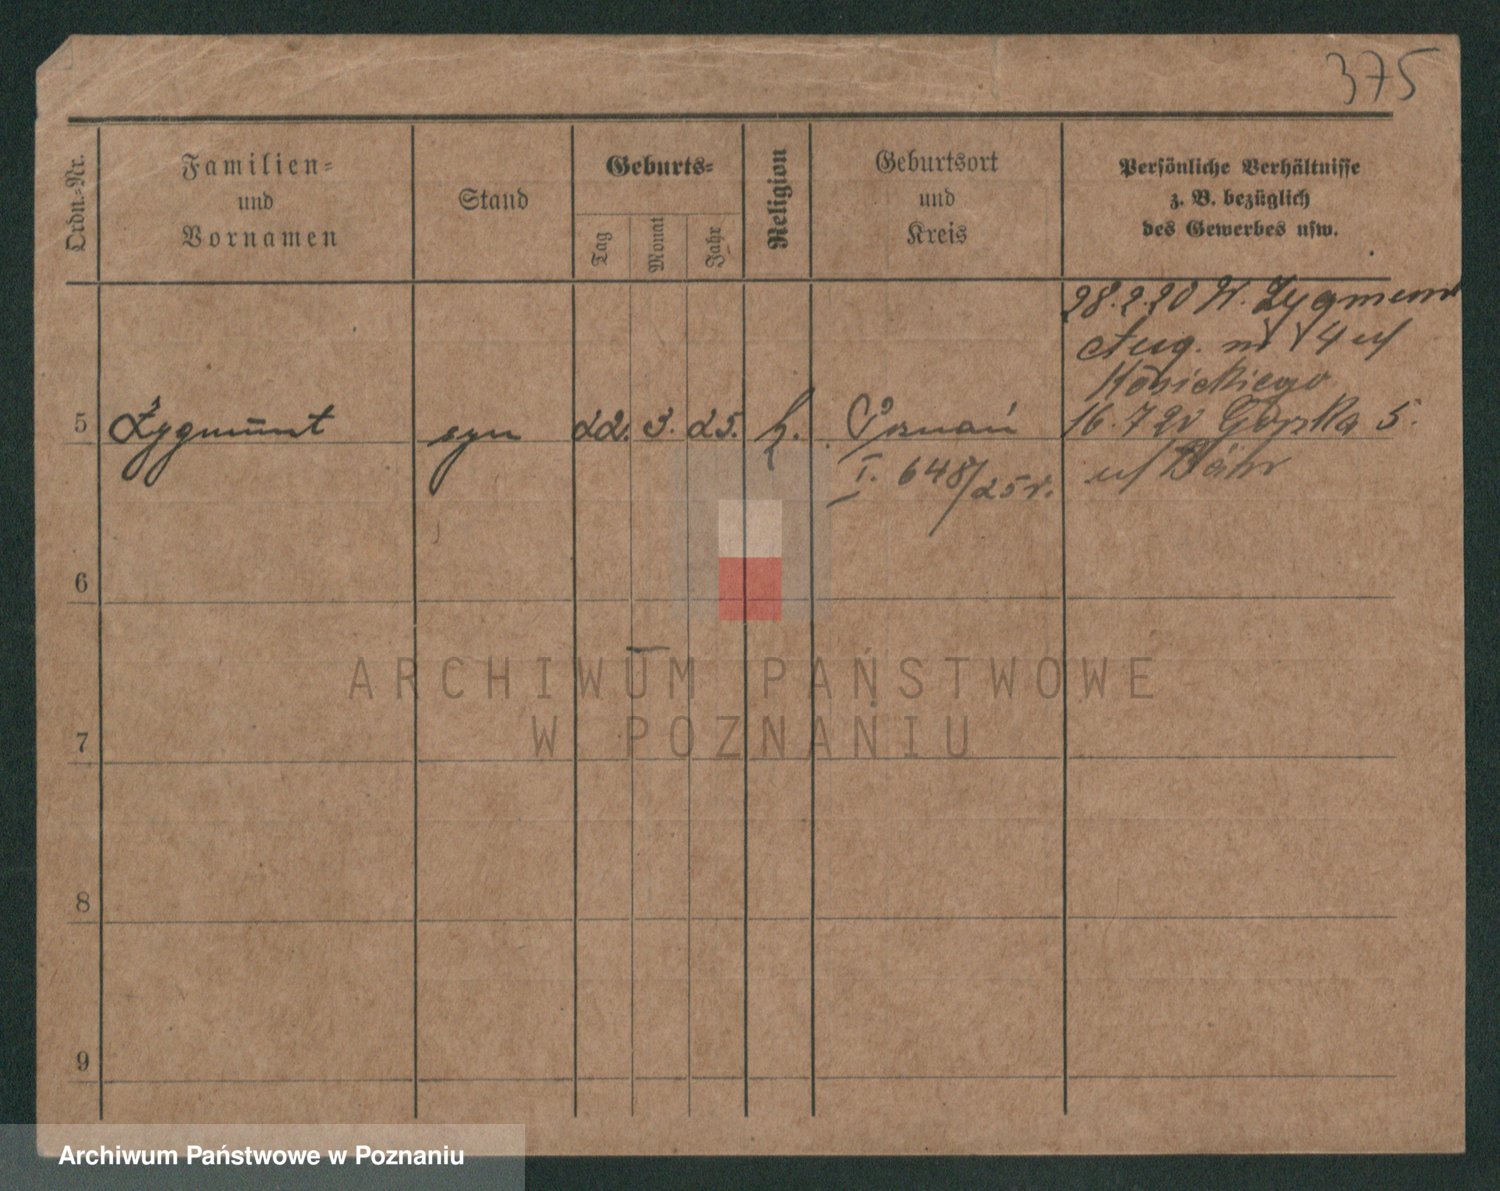 375
Ordn.-Nr.
Familien-
und
Vornamen
Stand
Geburts-
Tag
Monat
Jahr
Religion
Geburtsort
und
Kreis
Persönliche Verhältnisse
z. B. bezüglich
des Gewerbes usw.
28.2.20 W. Zygmunt
Aug. 14 u/
5 Zygmunt syn 22. 3. 25. k. Poznań 16.7 20 Górka 5.
I. 648/25 r. u/ Bähr
6
7
8
9
ARCHIWUM PAŃSTWOWE
W POZNANIU
Archiwum Państwowe w Poznaniu